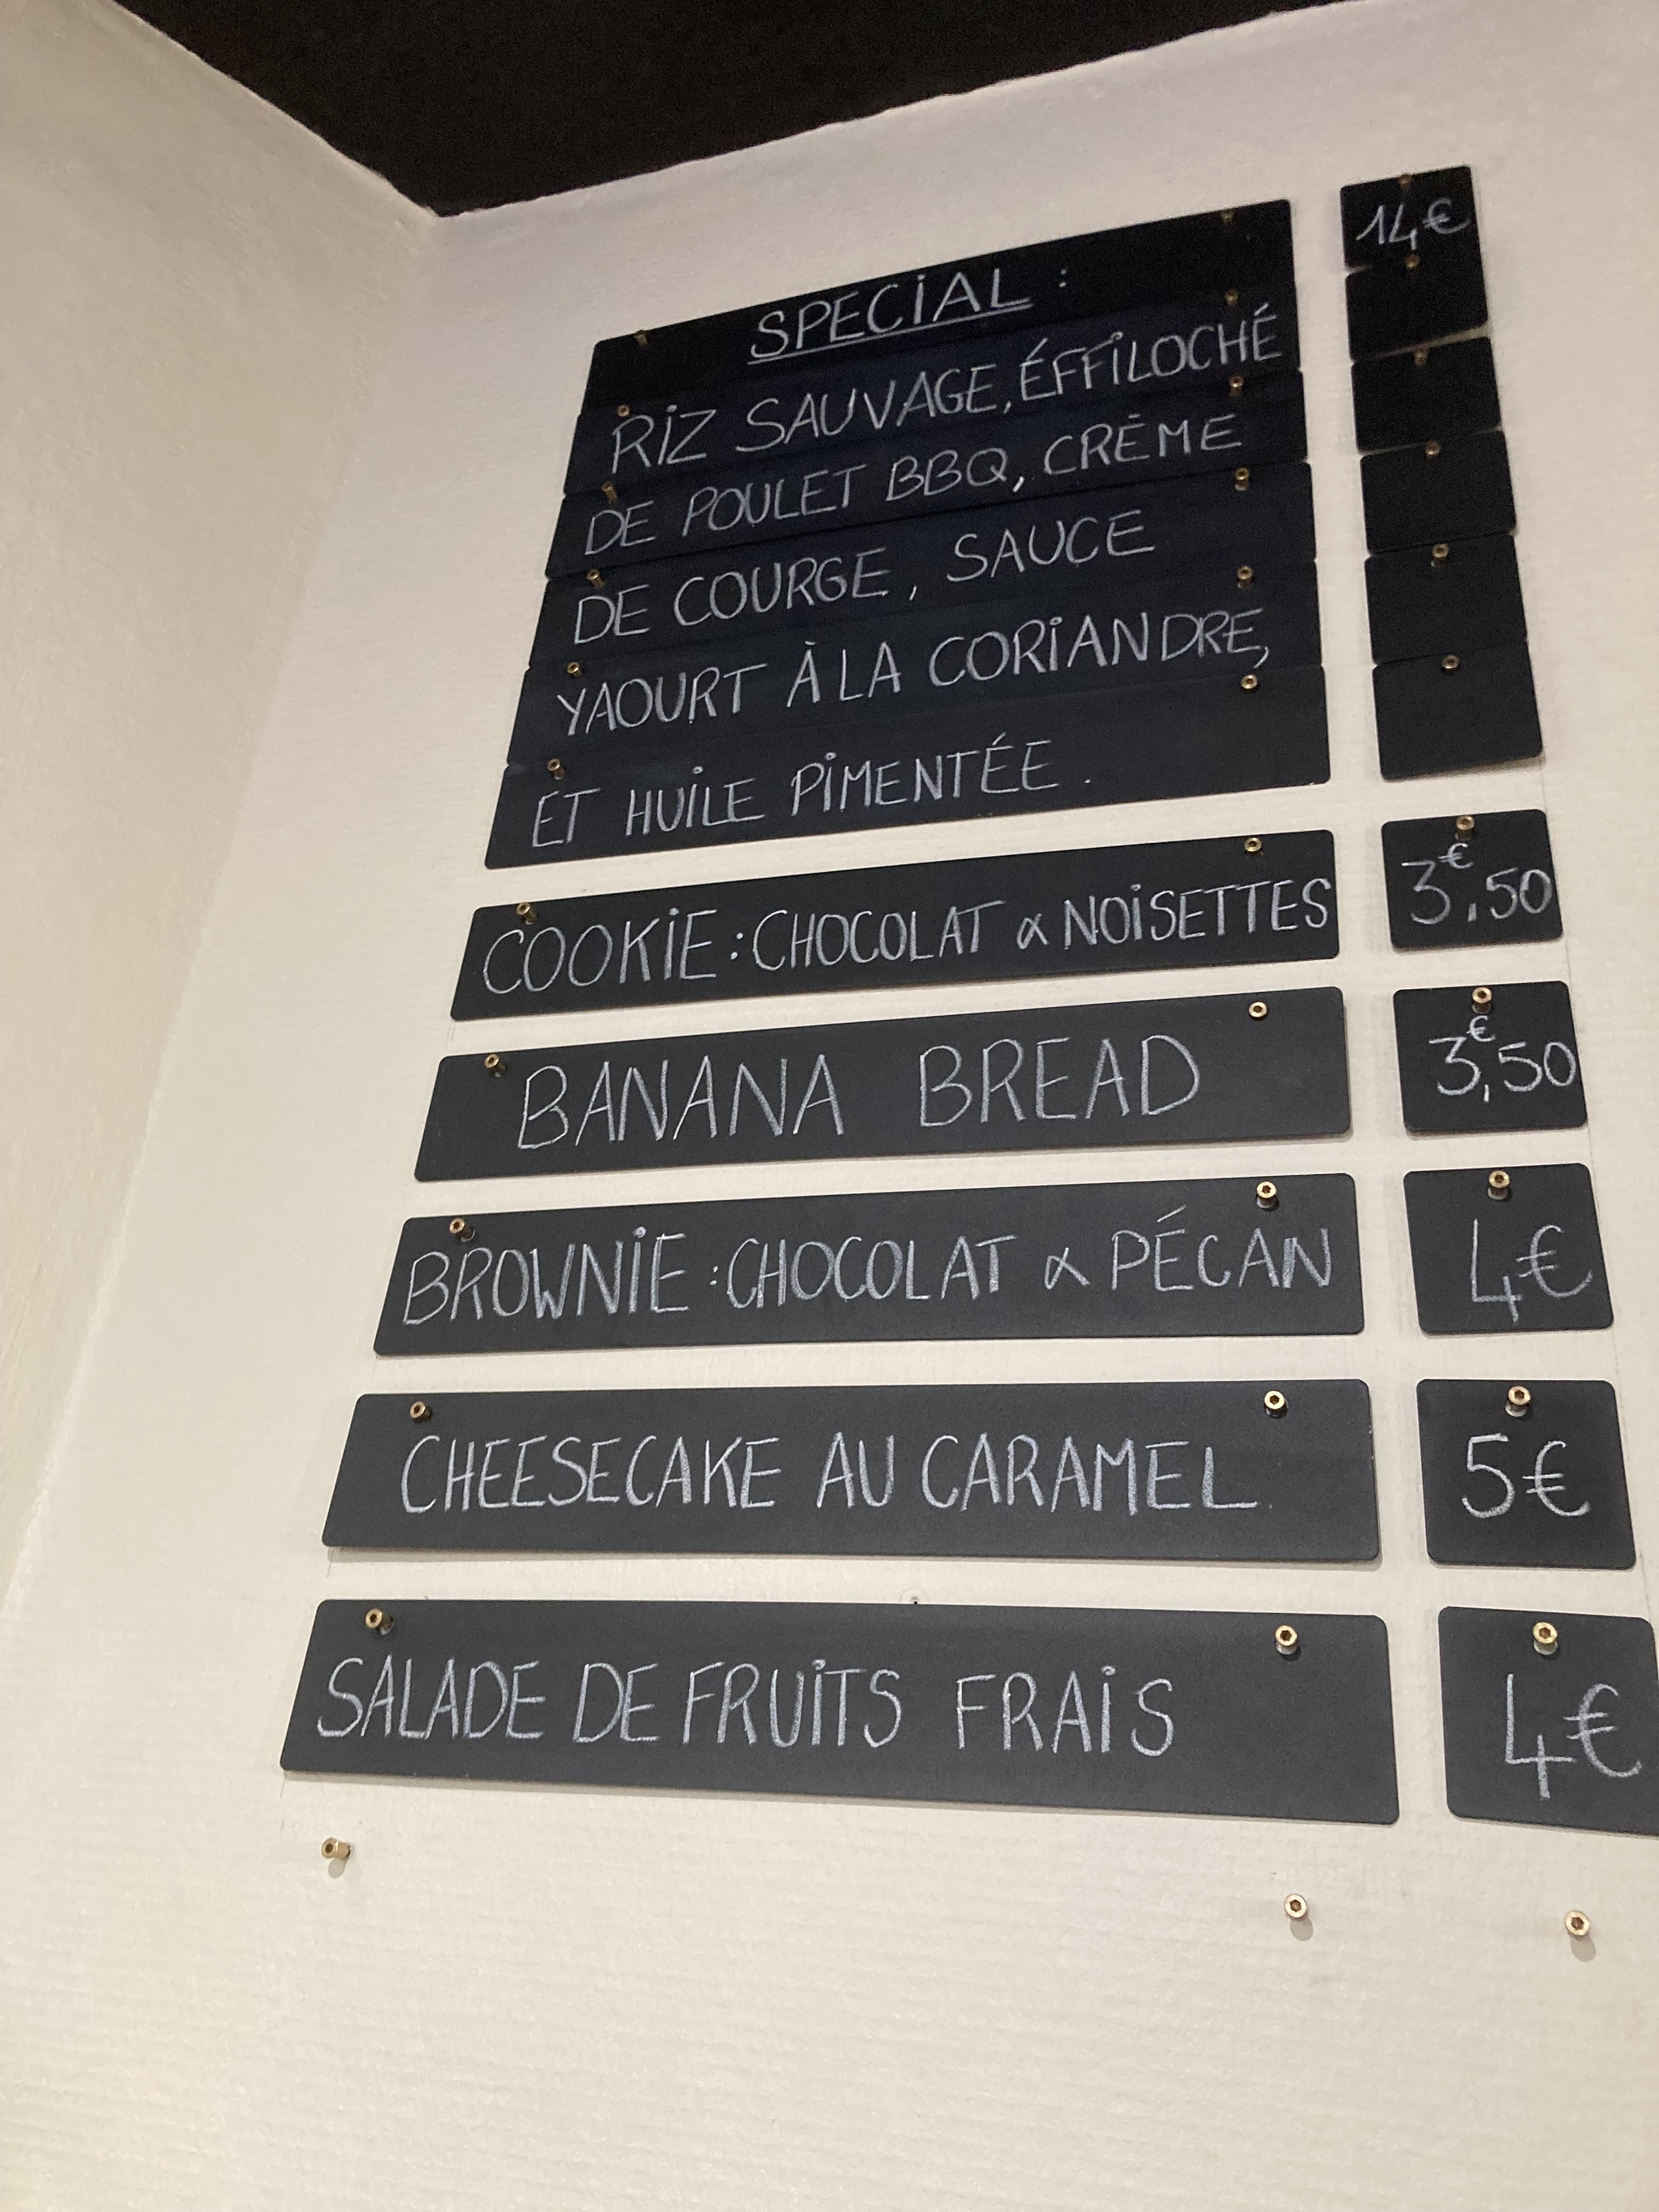 SPECIAL : 14€
RIZ SAUVAGE, ÉFFILOCHÉ
DE POULET BBQ, CRÈME
DE COURGE, SAUCE
YAOURT À LA CORIANDRE,
ET HUILE PIMENTÉE.
COOKIE : CHOCOLAT & NOISETTES 3€,50
BANANA BREAD 3€,50
BROWNIE : CHOCOLAT & PÉCAN 4€
CHEESECAKE AU CARAMEL 5€
SALADE DE FRUITS FRAIS 4€